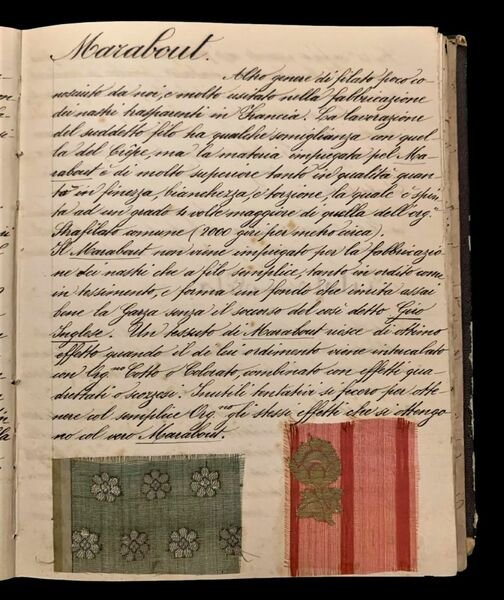 Marabout.
Altro genere di filato poco co
nosciuto da noi, e molto usitato nella fabbricazione
dei nastri trasparenti in Francia. La lavorazione
del suddetto filo ha qualche somiglianza con quel
la del Crêpe, ma la materia impiegata pel Ma-
rabout è di molto superiore tanto in qualità quan
to in finezza, bianchezza, e torsione, la quale è spin
ta ad un grado 4 volte maggiore di quella dell'Org.no
Strafilato comune (2000 giri per metro circa).
Il Marabout non viene impiegato per la fabbricazio
ne dei nastri che a filo semplice, tanto in ordito come
in tessimento, e forma un fondo che imita assai
bene la Garza senza il soccorso del così detto Giro
Inglese. Un tessuto di Marabout riesce di ottimo
effetto quando il di lui ordimento viene intercalato
con Org.no Cotto o Colorato, combinato con effetti qua
drettati o scozzesi. Inutili tentativi si fecero per otte
nere col semplice Org.no gli stessi effetti che si ottengo
no col vero Marabout.